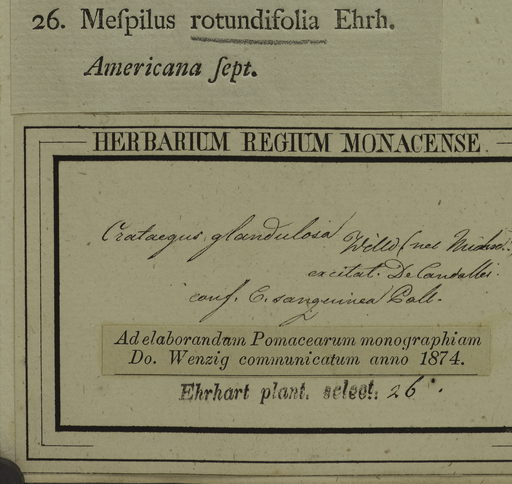 26. Meſpilus rotundifolia Ehrh.
Americana ſept.
HERBARIUM REGIUM MONACENSE.
Crataegus glandulosa Willd (nec Michx.)
excitat. De Candollei.
conf. C. sanguinea Pall.
Ad elaborandam Pomacearum monographiam
Do. Wenzig communicatum anno 1874.
Ehrhart plant. select. 26.